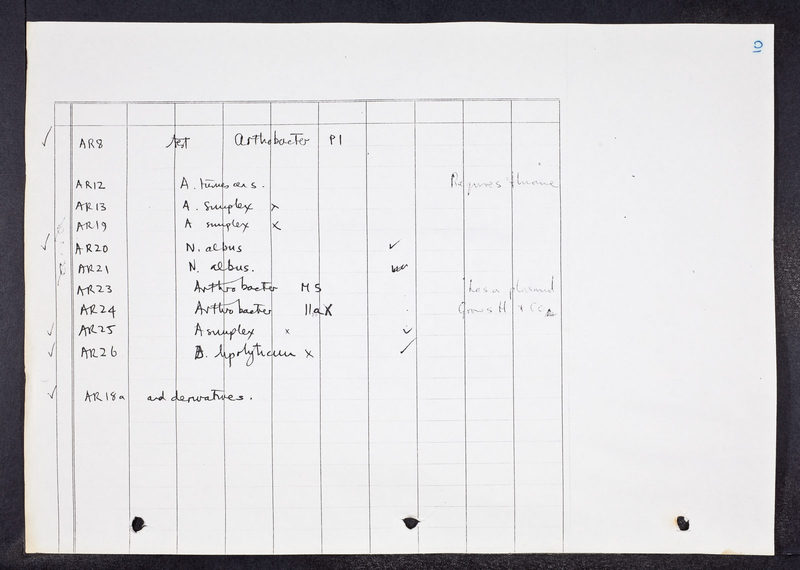 10
✓ AR8 test Arthrobacter P1
AR12 A. tumescens. Requires thiamine
AR13 A. simplex x
AR19 A simplex x
✓ AR20 N. albus ✓
AR21 N. albus.
AR23 Arthrobacter MS has a plasmid
AR24 Arthrobacter 11aX Grows H + CO2
✓ AR25 A simplex x ✓
✓ AR26 B. lipolyticum x ✓
✓ AR18a and derivatives.